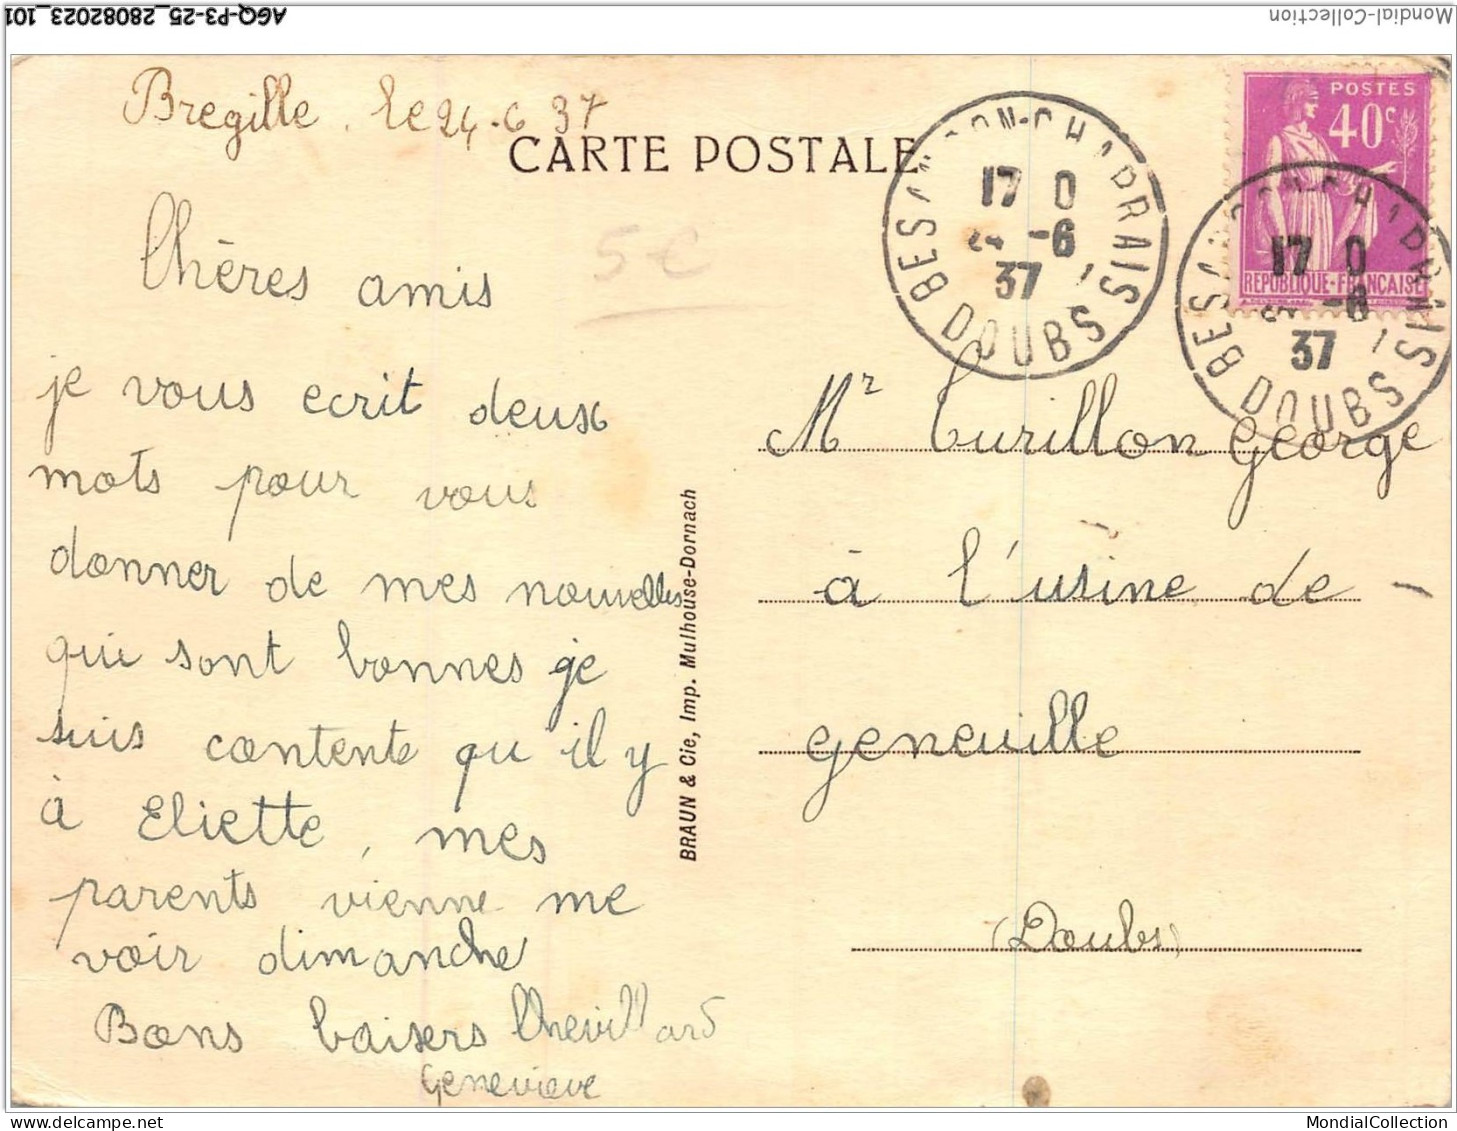 AGQ-P3-25_28082023_101
Mondial-Collection
Bregille, le 24-6 37
CARTE POSTALE
POSTES
40c
REPUBLIQUE-FRANÇAISE
BESANCON-CHAPRAIS
17 0
24 -6
37
DOUBS
BESANCON-CHAPRAIS
17 0
24 -6
37
DOUBS
5€
Chères amis
je vous ecrit deux
mots pour vous
donner de mes nouvelles
qui sont bonnes je
suis contente qu il y
à Eliette, mes
parents vienne me
voir dimanche
Bons baisers Chevillard
Genevieve
BRAUN & Cie, Imp. Mulhouse-Dornach
Mr Curillon George
à l'usine de
geneuille
(Doubs)
MondialCollection